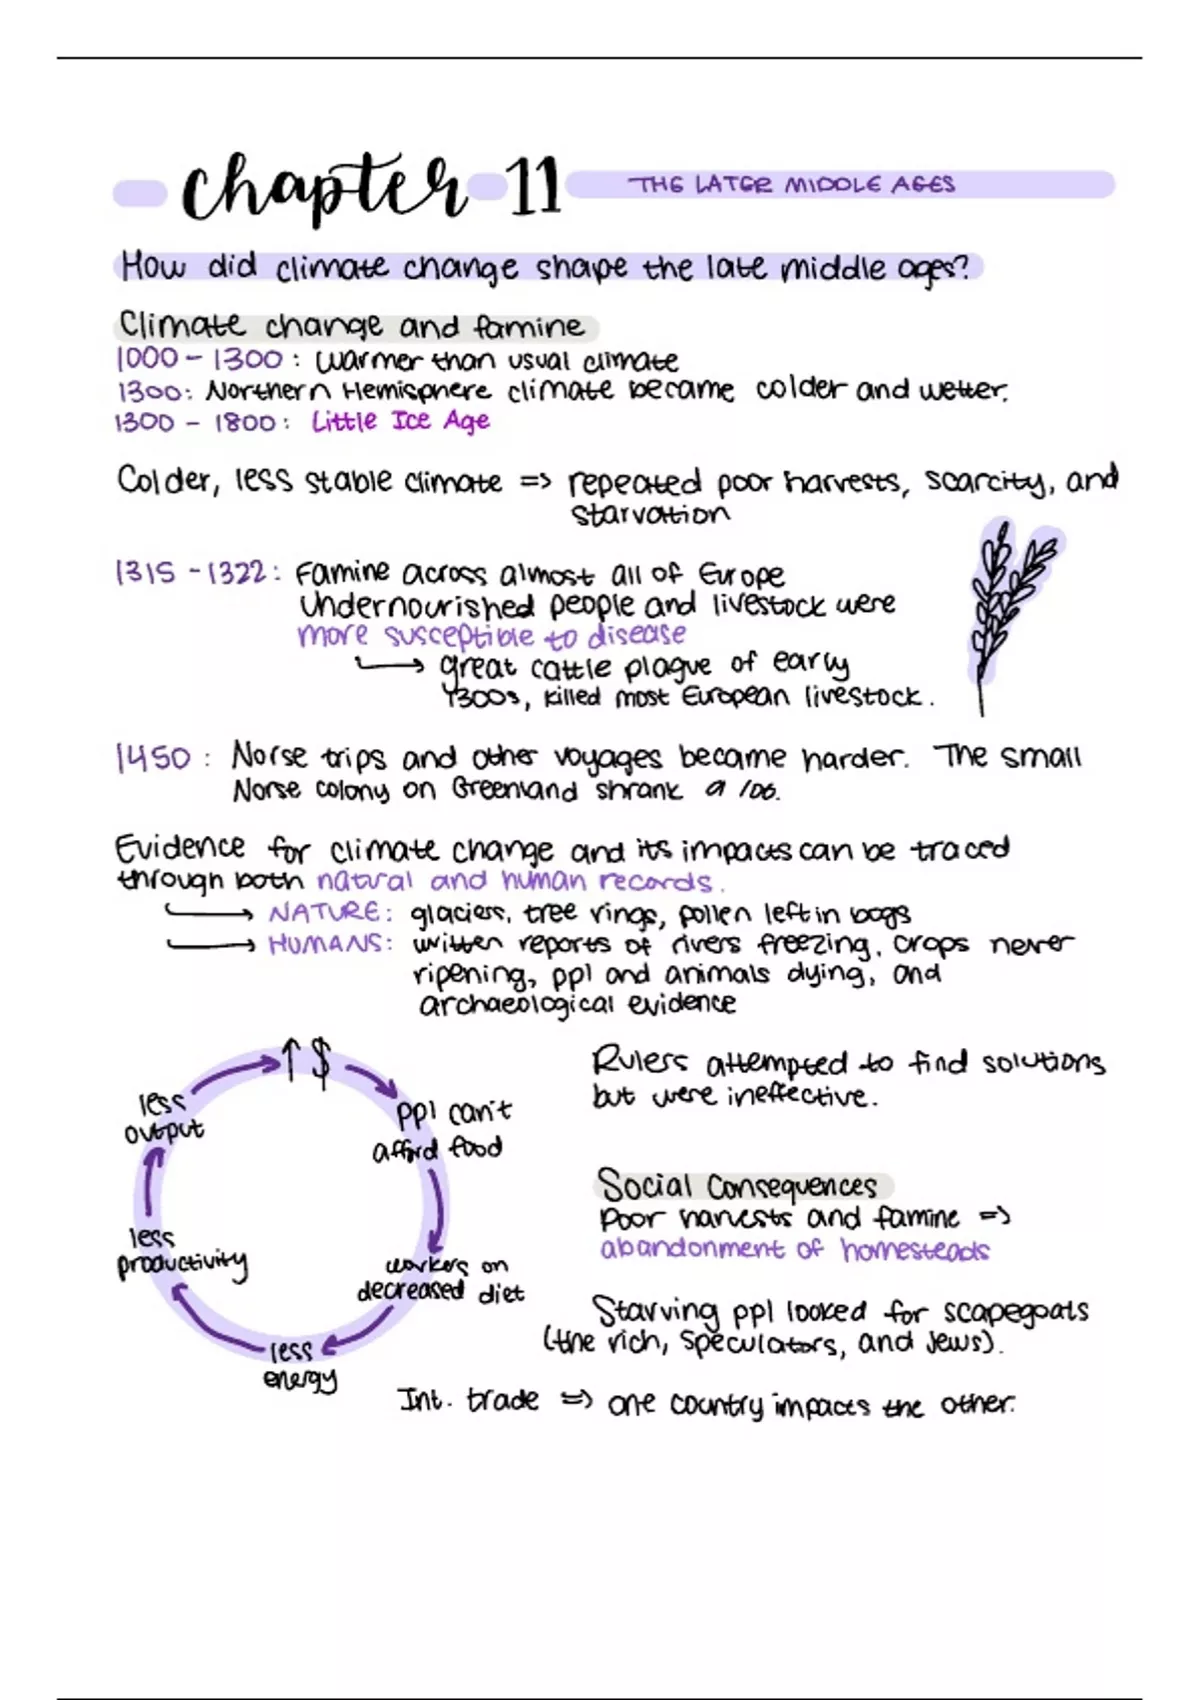 chapter 11 THE LATER MIDDLE AGES
How did climate change shape the late middle ages?
Climate change and famine
1000 - 1300: warmer than usual climate
1300: Northern Hemisphere climate became colder and wetter.
1300 - 1800: Little Ice Age
Colder, less stable climate => repeated poor harvests, scarcity, and
starvation
1315 - 1322: Famine across almost all of Europe
Undernourished people and livestock were
more susceptible to disease
→ great cattle plague of early
1300s, killed most European livestock.
1450: Norse trips and other voyages became harder. The small
Norse colony on Greenland shrank a lot.
Evidence for climate change and its impacts can be traced
through both natural and human records.
→ NATURE: glaciers, tree rings, pollen left in bogs
→ HUMANS: written reports of rivers freezing, crops never
ripening, ppl and animals dying, and
archaeological evidence
↑ $
ppl can't
afford food
workers on
decreased diet
less
energy
less
productivity
less
output
Rulers attempted to find solutions
but were ineffective.
Social Consequences
Poor harvests and famine =>
abandonment of homesteads
Starving ppl looked for scapegoats
(the rich, speculators, and Jews).
Int. trade => one country impacts the other.